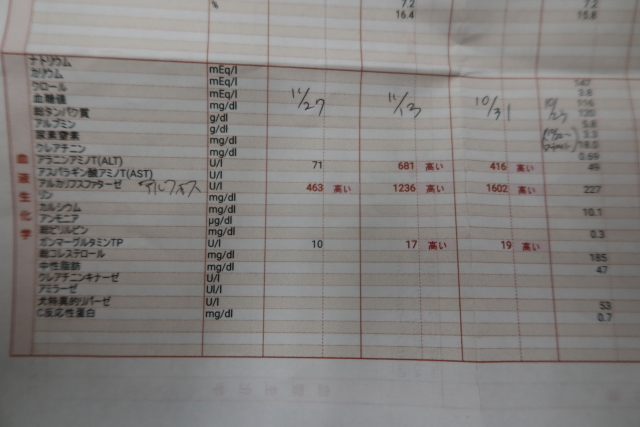 % 7.2 7.2
16.4 15.8
ナトリウム mEq/l 147
カリウム mEq/l 3.8
クロール mEq/l 116
血糖値 mg/dl 11/27 11/13 10/31 120
総タンパク質 g/dl 5.8
アルブミン g/dl 3.3
尿素窒素 mg/dl 18.0
クレアチニン mg/dl 0.69
アラニンアミノT(ALT) U/l 71 681 高い 416 高い 49
アスパラギン酸アミノT(AST) U/l
アルカリフスファターゼ アルフォス U/l 463 高い 1236 高い 1602 高い 227
リン mg/dl
カルシウム mg/dl 10.1
アンモニア μg/dl
総ビリルビン mg/dl 0.3
ガンマーグルタミンTP U/l 10 17 高い 19 高い
総コレステロール mg/dl 185
中性脂肪 mg/dl 47
クレアチニンキナーゼ U/l
アミラーゼ U/l
犬特異的リパーゼ U/l 53
C反応性蛋白 mg/dl 0.7
血液生化学